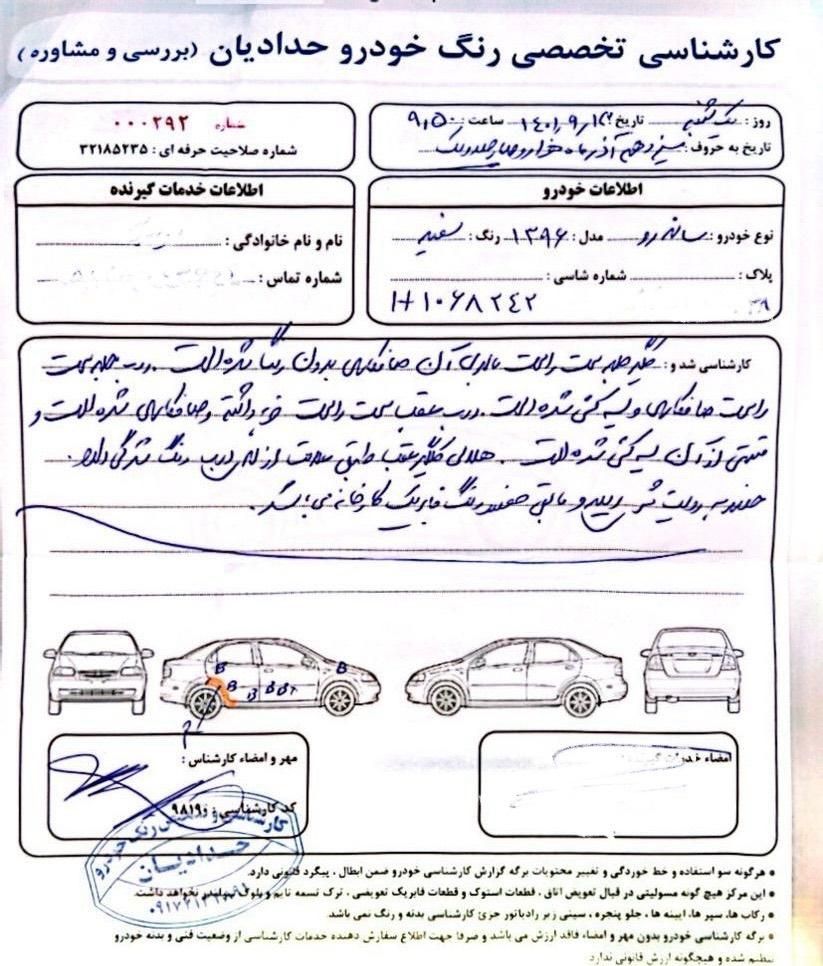 کارشناسی تخصصی رنگ خودرو حدادیان (بررسی و مشاوره)
روز : یک شنبه تاریخ ۱۴۰۱/۹/۱۳ ساعت : ۹،۵۰
تاریخ به حروف : سیزدهم آذر ماه هزار و چهارصد و یک
شماره ۰۰۰۲۹۲
شماره صلاحیت حرفه ای : ۳۲۱۸۵۲۳۵
اطلاعات خودرو
نوع خودرو : ساندرو مدل : ۱۳۹۶ رنگ : سفید
پلاک : شماره شاسی :
H1068242
اطلاعات خدمات گیرنده
نام و نام خانوادگی :
شماره تماس :
کارشناسی شد و : گلگیر جلو سمت راست بالای آن صافکاری بدون رنگ شده است . درب جلو سمت
راست صافکاری و لیسه گیری شده است . درب عقب سمت راست خوردگی داشته و صافکاری شده است و
قسمتی از آن لیسه گیری شده است . هلالی گلگیر عقب طبق علامت از لای درب رنگ شدگی دارد .
رنگ فابریک کارخانه می باشد .
B B B B B+ B
امضاء خدمات گیرنده
مهر و امضاء کارشناس :
کد کارشناسی : ۹۸۱۹
کارشناسی و رنگ خودرو
حدادیان
* هرگونه سو استفاده و خط خوردگی و تغییر محتویات برگه گزارش کارشناسی خودرو ضمن ابطال ، پیگرد قانونی دارد.
* این مرکز هیچ گونه مسولیتی در قبال تعویض اتاق ، قطعات استوک و قطعات فابریک تعویضی ، ترک تسمه تایم و بلوک سیلندر نخواهد داشت.
* رکاب ها، سپر ها، ایینه ها ، جلو پنجره ، سینی زیر رادیاتور جزئ کارشناسی بدنه و رنگ نمی باشد.
* برگه کارشناسی خودرو بدون مهر و امضاء فاقد ارزش می باشد و صرفا جهت اطلاع سفارش دهنده خدمات کارشناسی از وضعیت فنی و بدنه خودرو
تنظیم شده و هیچگونه ارزش قانونی ندارد